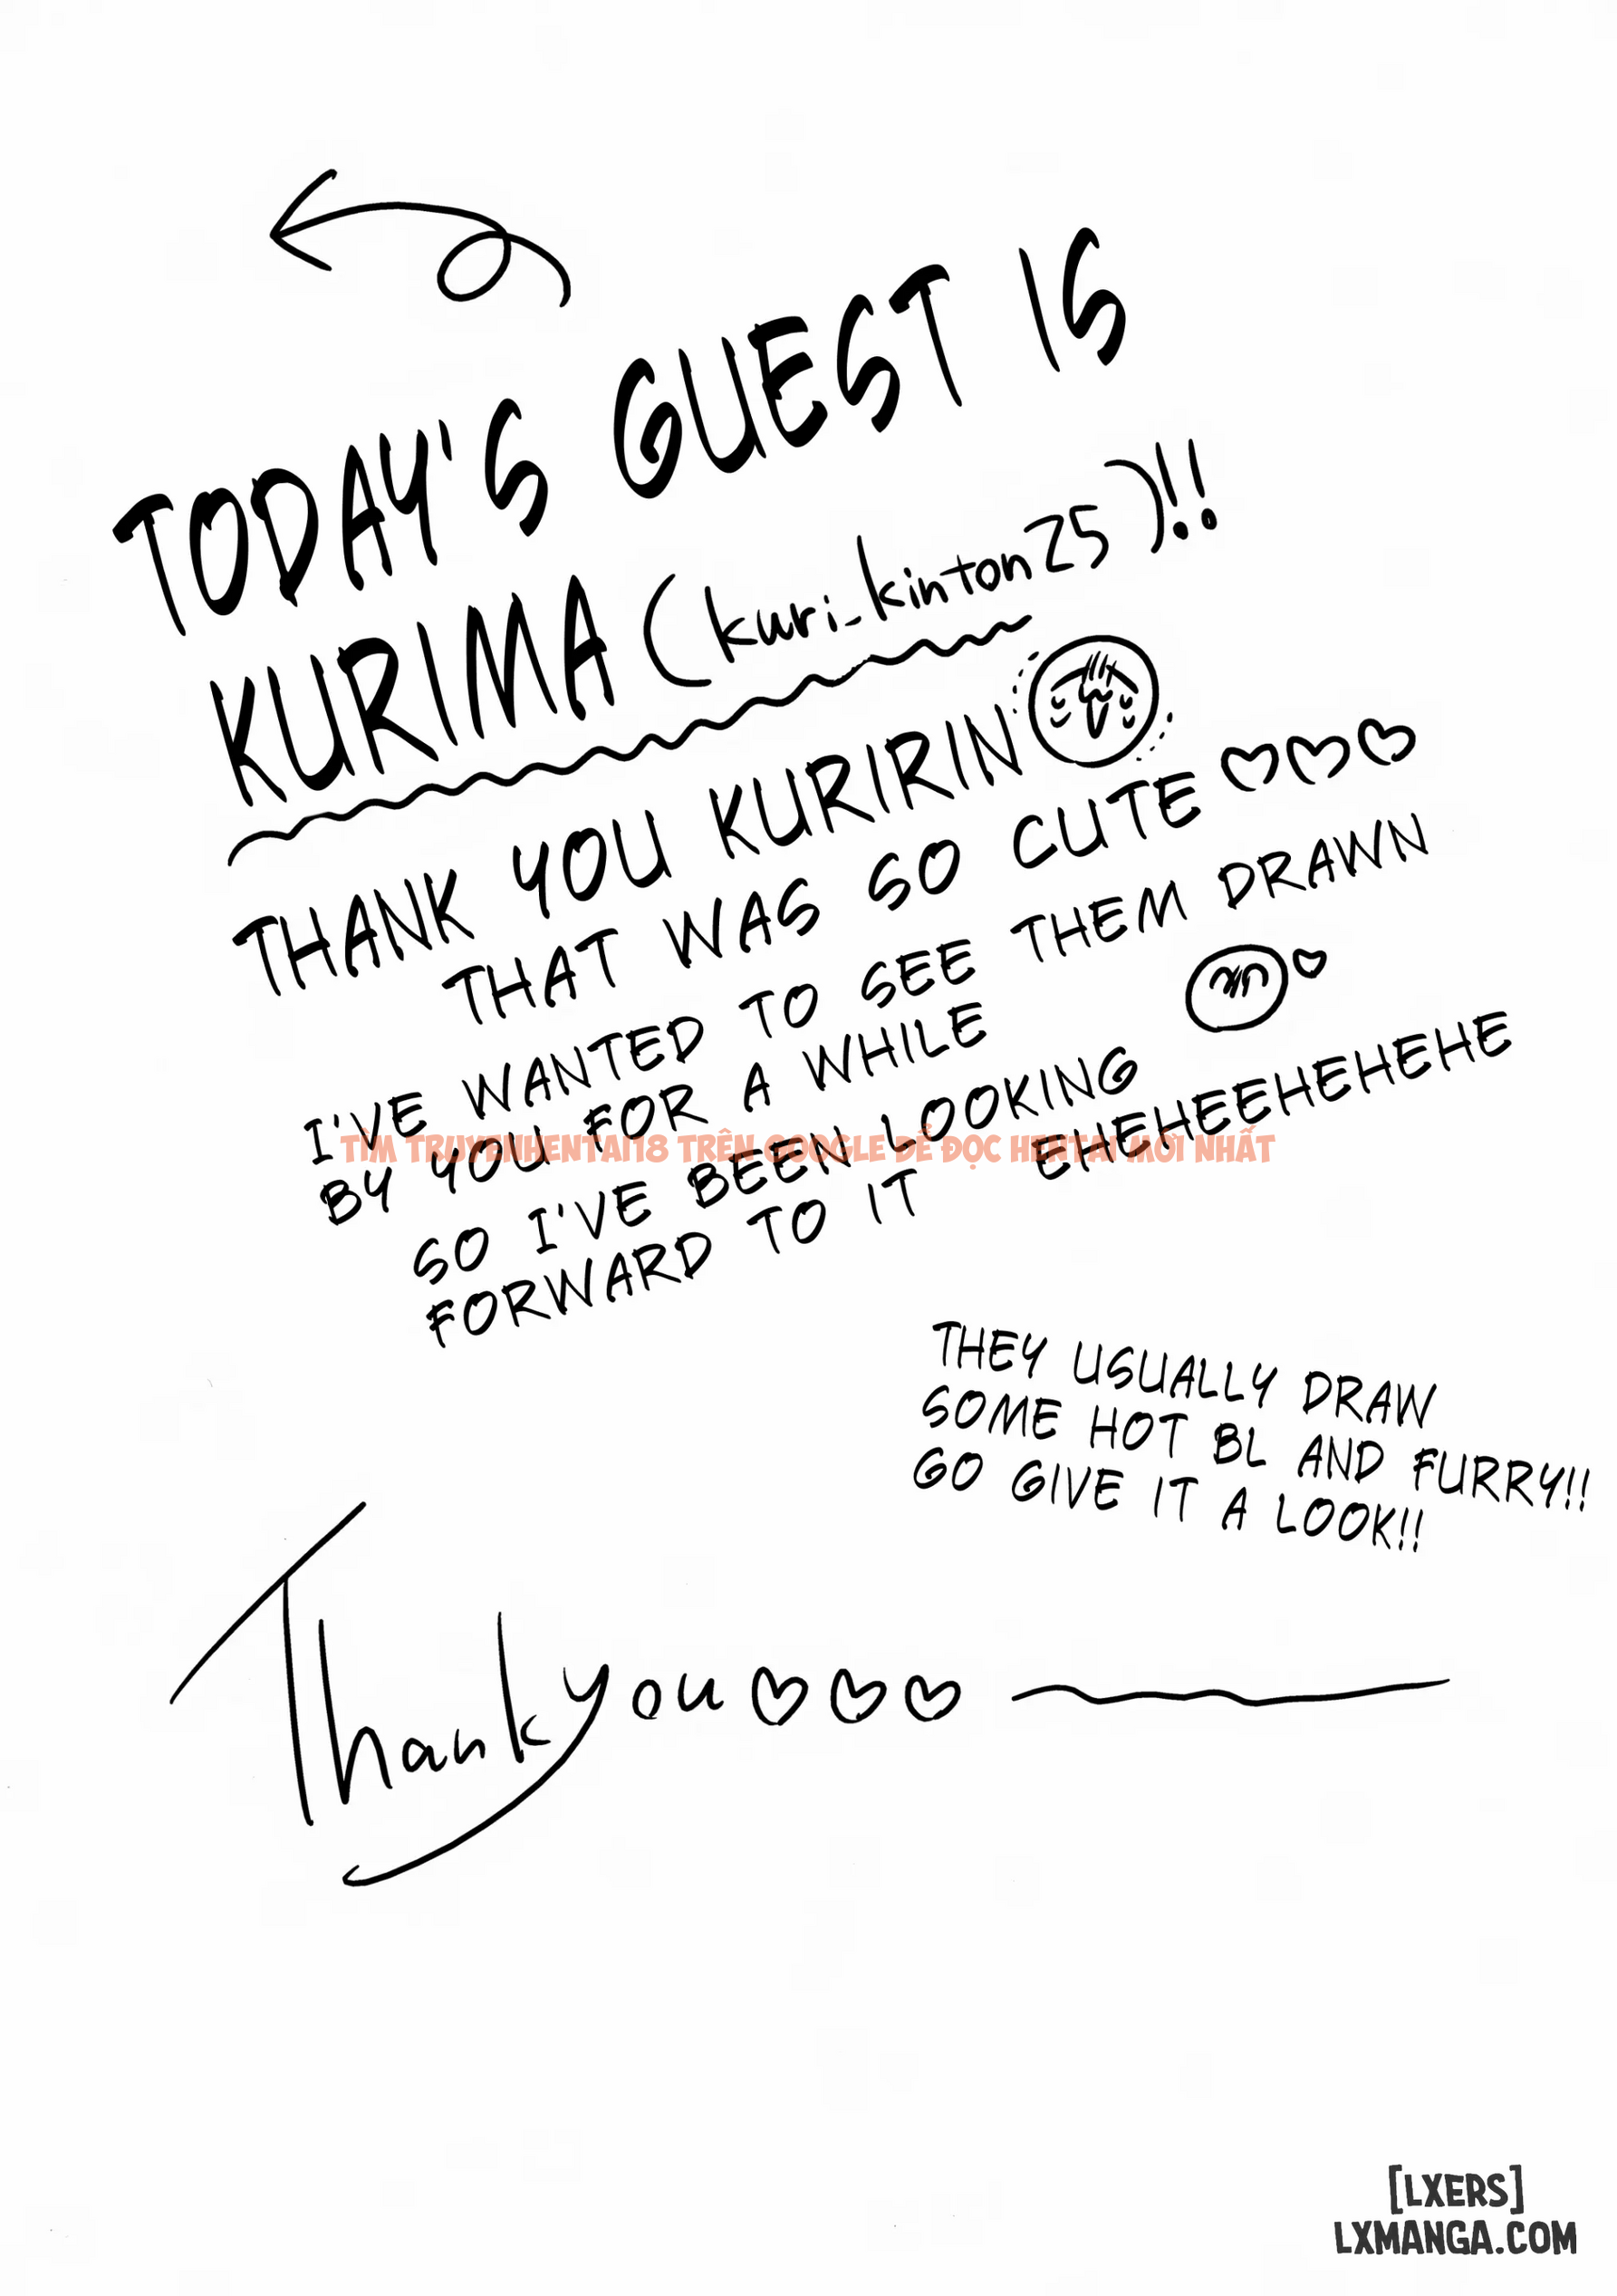 TODAY'S GUEST IS
KURIMA (kuri_kinton25)!!
THANK YOU KURIRIN
THAT WAS SO CUTE ♡♡♡
I'VE WANTED TO SEE THEM DRAWN
BY YOU FOR A WHILE
SO I'VE BEEN LOOKING
FORWARD TO IT
EHEHEEHEHEHE
TÌM TRUYENHENTAI18 TRÊN GOOGLE ĐỂ ĐỌC HENTAI MỚI NHẤT
THEY USUALLY DRAW
SOME HOT BL AND FURRY!!
GO GIVE IT A LOOK!!
Thank you ♡♡♡
[LXERS]
LXMANGA.COM